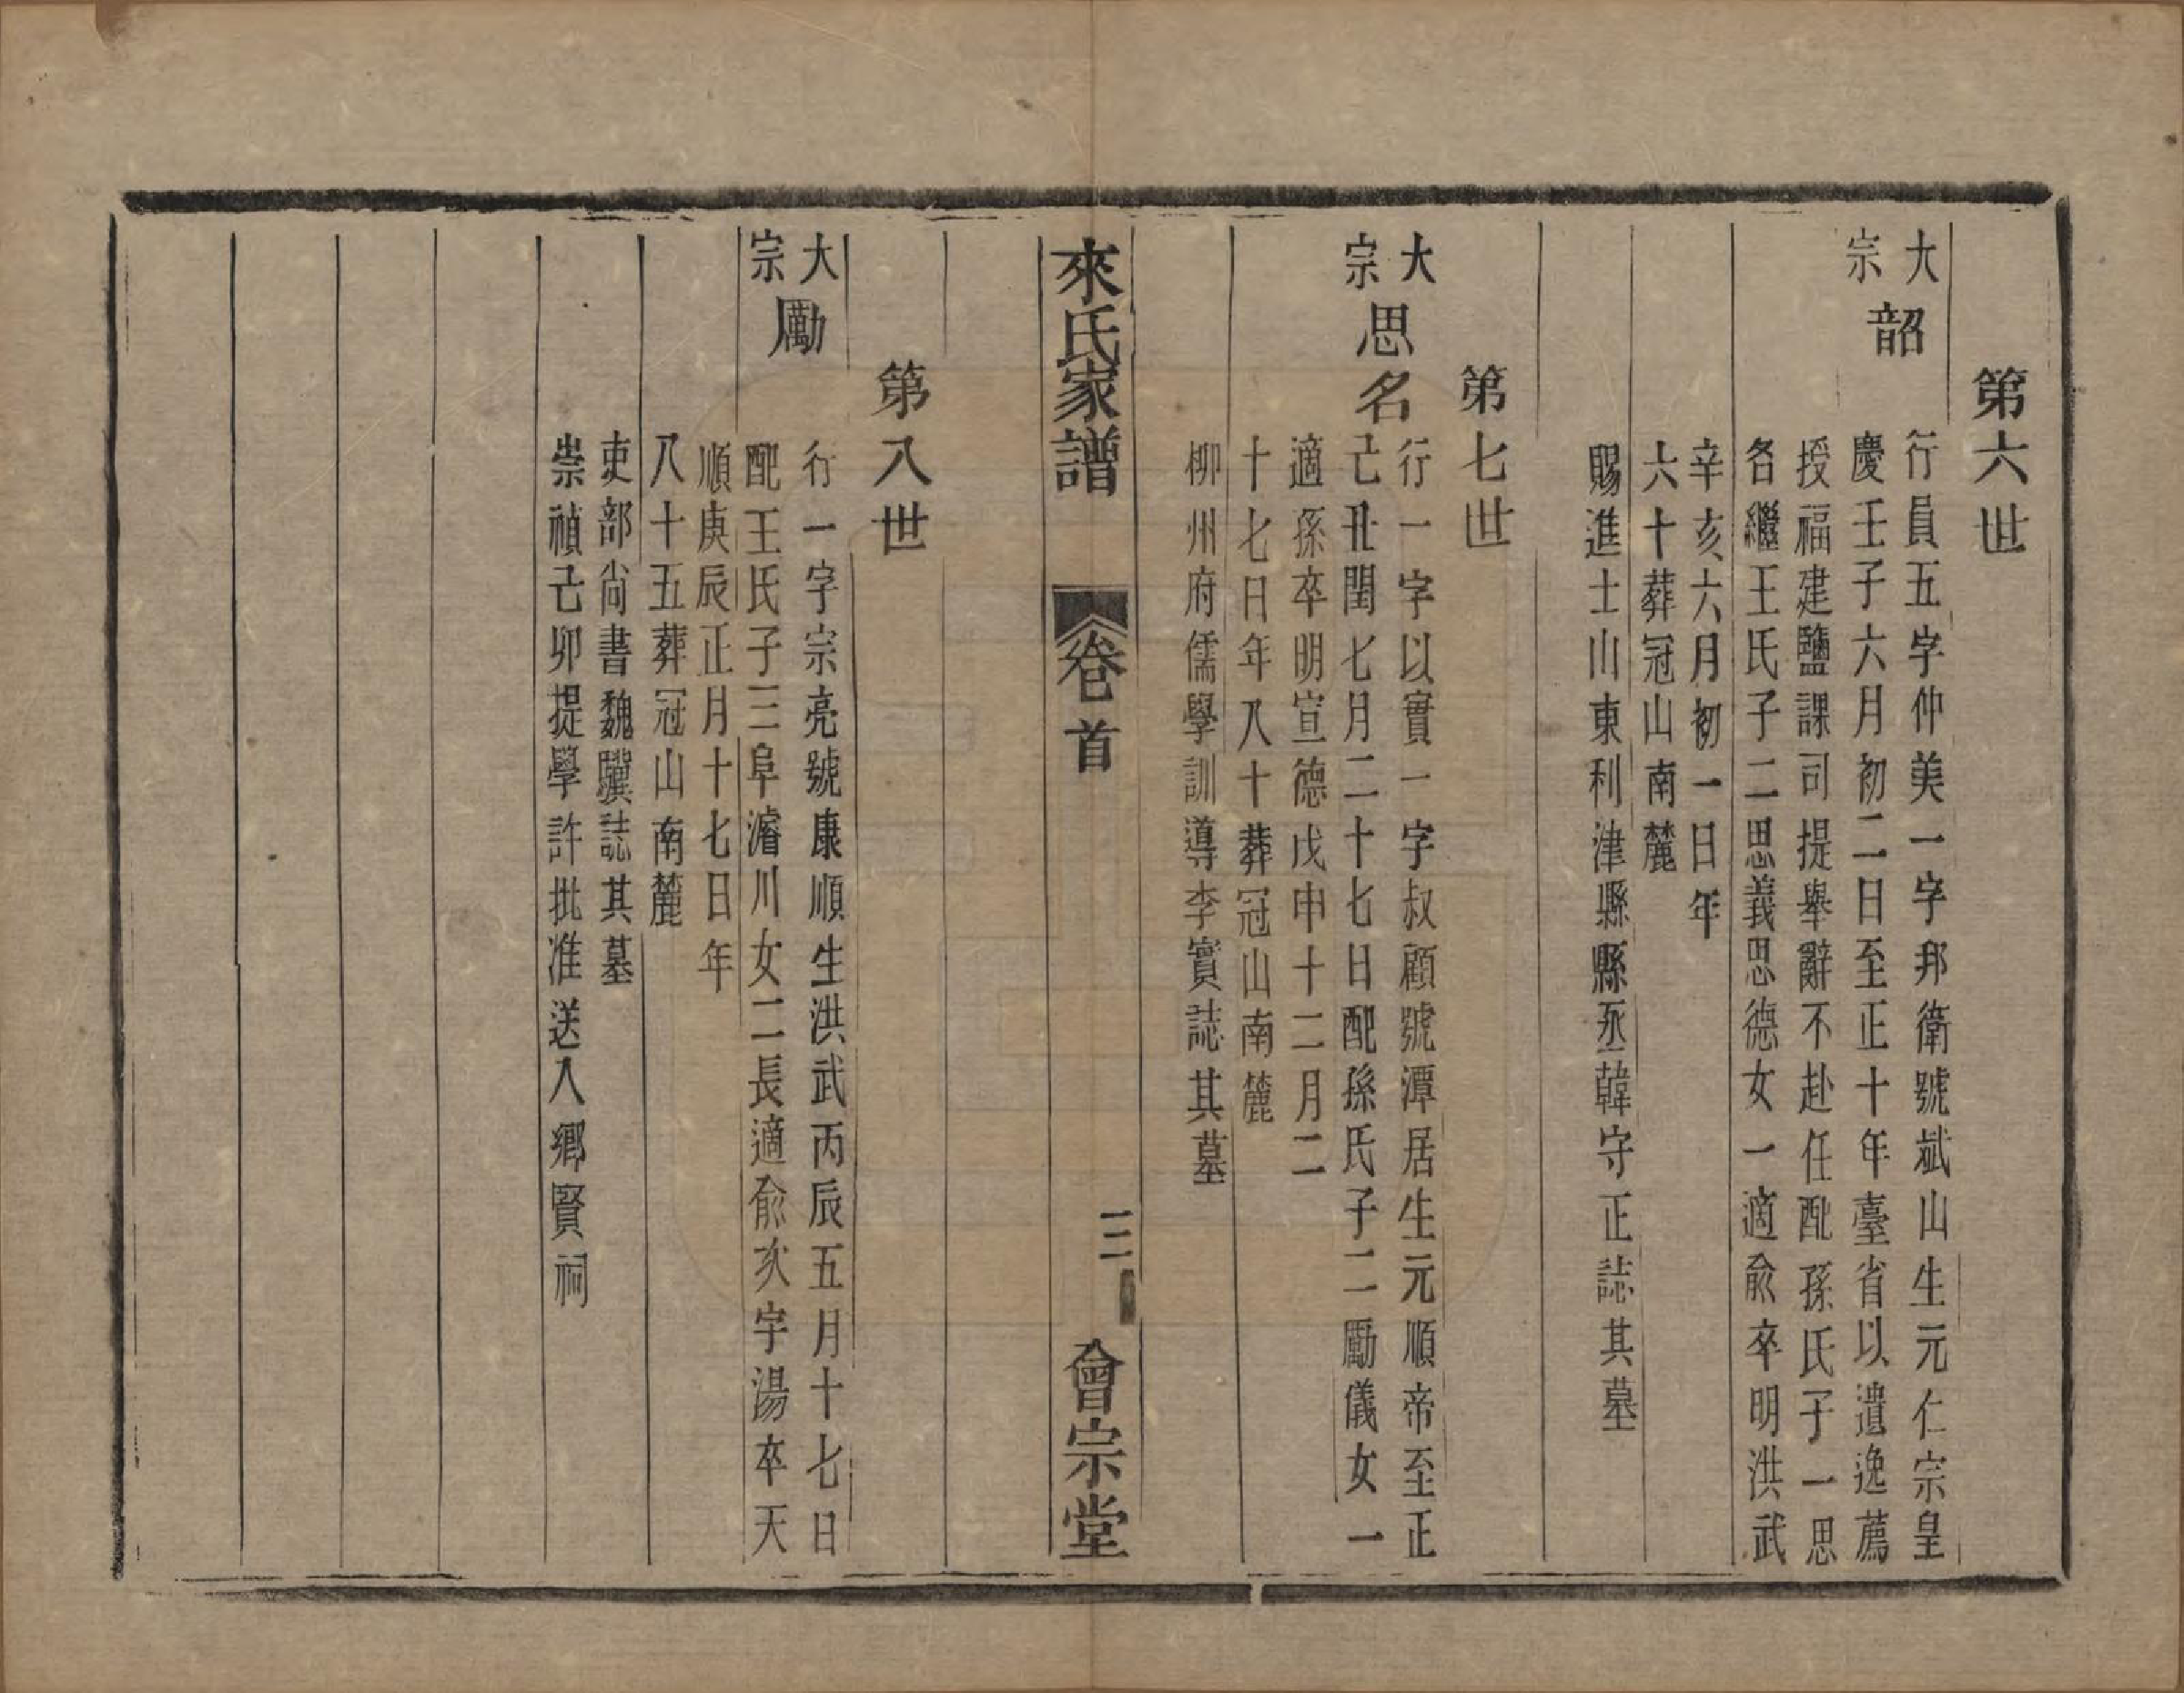 第六世
大宗 韶
行員五字仲美一字邦衛號斌山生元仁宗皇
慶壬子六月初二日至正十年臺省以遺逸薦
授福建鹽課司提舉辭不赴任配孫氏子一思
名繼王氏子二思義思德女一適兪卒明洪武
辛亥六月初一日年
六十葬冠山南麓
賜進士山東利津縣縣丞韓守正誌其墓
第七世
大宗 思名
行一字以實一字叔顧號潭居生元順帝至正
己丑閏七月二十七日配孫氏子二勵儀女一
適孫卒明宣德戊申十二月二
十七日年八十葬冠山南麓
柳州府儒學訓導李實誌其墓
來氏家譜
卷首
三
會宗堂
第八世
大宗 勵
行一字宗亮號康順生洪武丙辰五月十七日
配王氏子三阜濬川女二長適兪亥字湯卒天
順庚辰正月十七日年
八十五葬冠山南麓
吏部尙書魏驥誌其墓
崇禎己卯提學許批准送入鄉賢祠